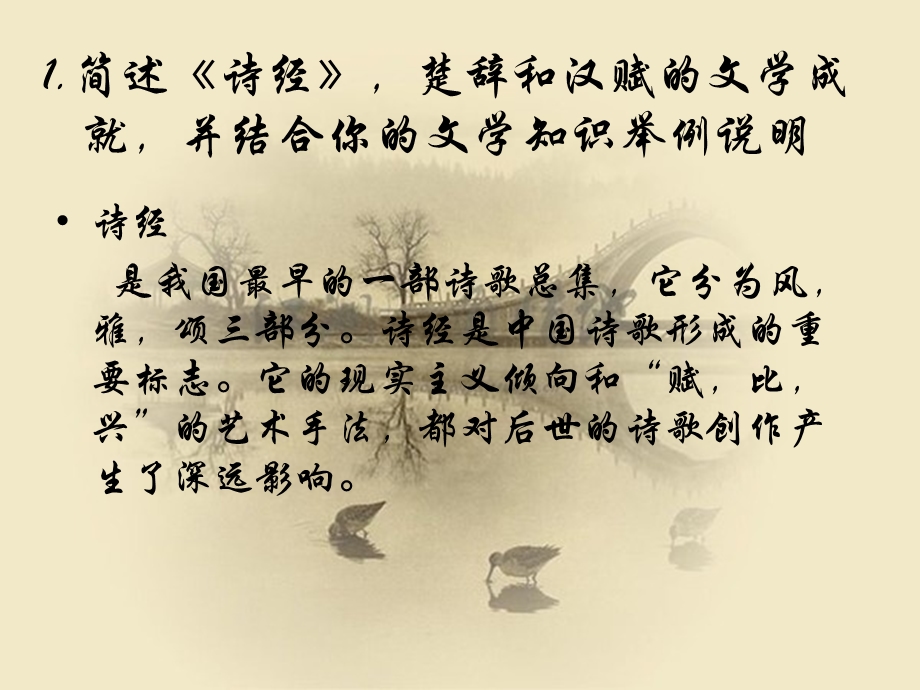 1.简述《诗经》，楚辞和汉赋的文学成
就，并结合你的文学知识举例说明
• 诗经
是我国最早的一部诗歌总集，它分为风，
雅，颂三部分。诗经是中国诗歌形成的重
要标志。它的现实主义倾向和“赋，比，
兴”的艺术手法，都对后世的诗歌创作产
生了深远影响。